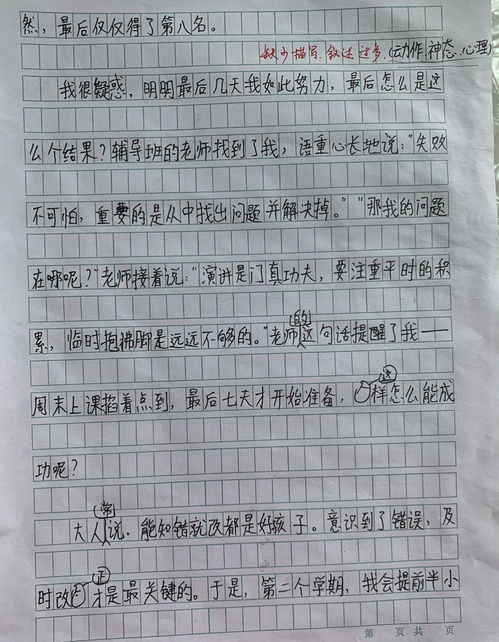 然，最后仅仅得了第八名。
缺少描写、叙述过多(动作、神态、心理)
我很疑惑，明明最后几天我如此努力，最后怎么是这
么个结果？辅导班的老师找到了我，语重心长地说：“失败
不可怕，重要的是从中找出问题并解决掉。”“那我的问题
在哪呢？”老师接着说：“演讲是门真功夫，要注重平时的积
累，临时抱佛脚是远远不够的。”老师的这句话提醒了我——
周末上课掐着点到，最后七天才开始准备，这样怎么能成
功呢？
大人常说，能知错就改都是好孩子。意识到了错误，及
时改正才是最关键的。于是，第二个学期，我会提前半小
第 页 共 页